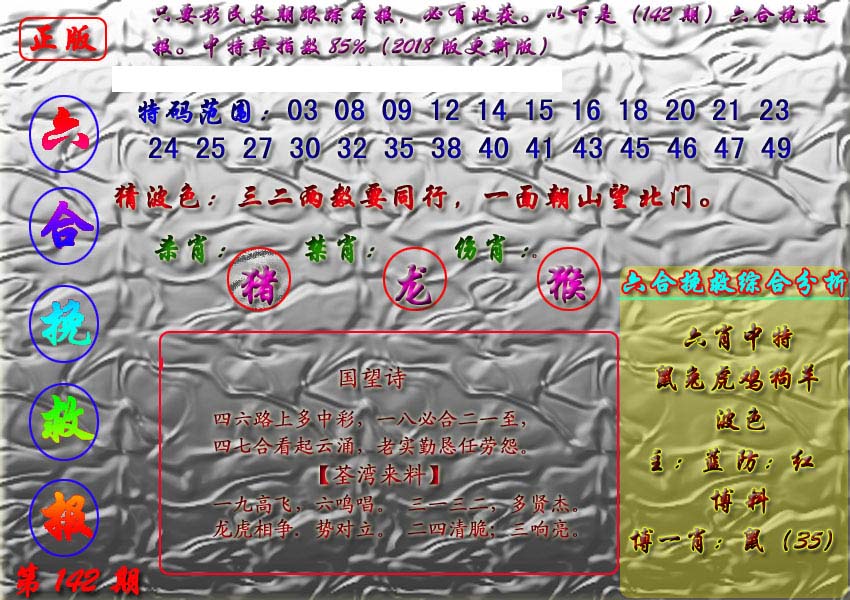 正版
只要彩民长期跟踪本报，必有收获。以下是（142期）六合挽救
报。中特率指数85%（2018版更新版）
六合挽救报
第142期
特码范围：03 08 09 12 14 15 16 18 20 21 23
24 25 27 30 32 35 38 40 41 43 45 46 47 49
猜波色：三二两数要同行，一面朝山望北门。
杀肖：猪 禁肖：龙 伤肖：猴
国望诗
四六路上多中彩，一八必合二一至，
四七合看起云涌，老实勤恳任劳怨。
【荃湾来料】
一九高飞，六鸣唱。 三一三二，多贤杰。
龙虎相争．势对立。 二四清脆；三响亮。
六合挽救综合分析
六肖中特
鼠兔虎鸡狗羊
波色
主：蓝防：红
博料
博一肖：鼠（35）